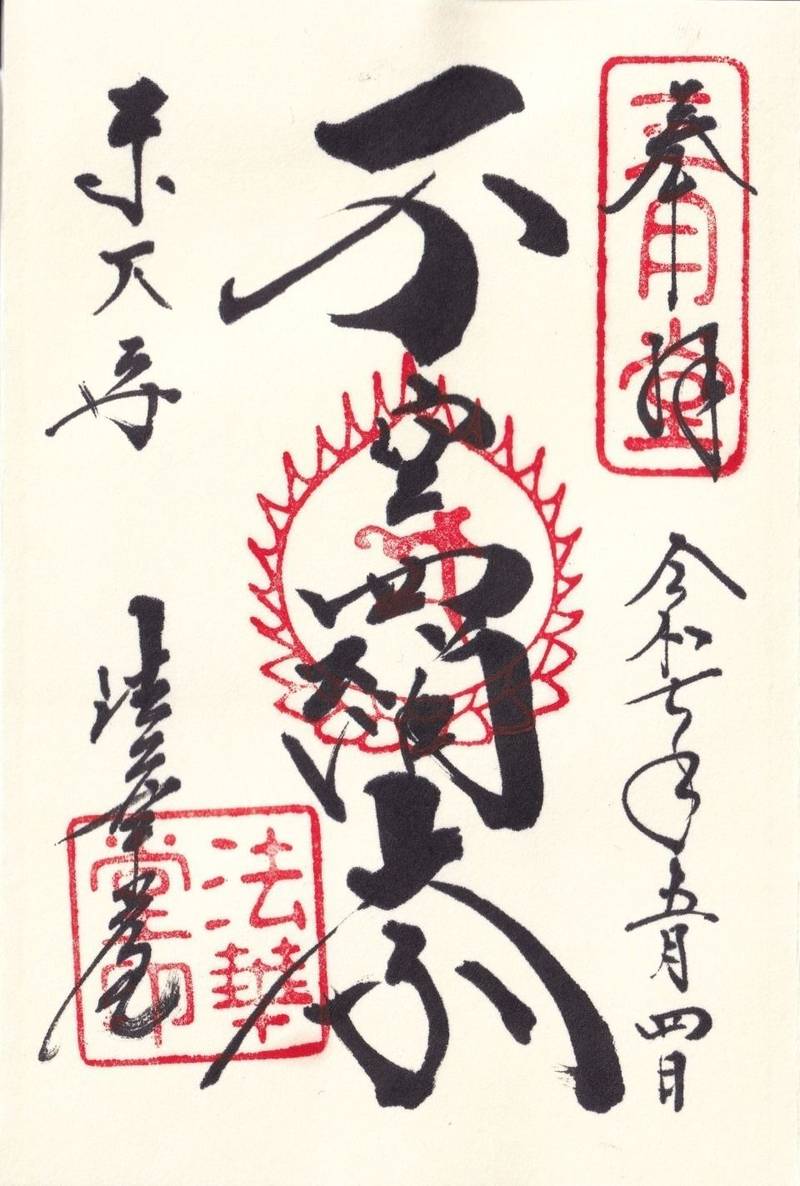 奉拝
三月堂
令和七年五月四日
不空羂索
東大寺
法華堂
法華堂印